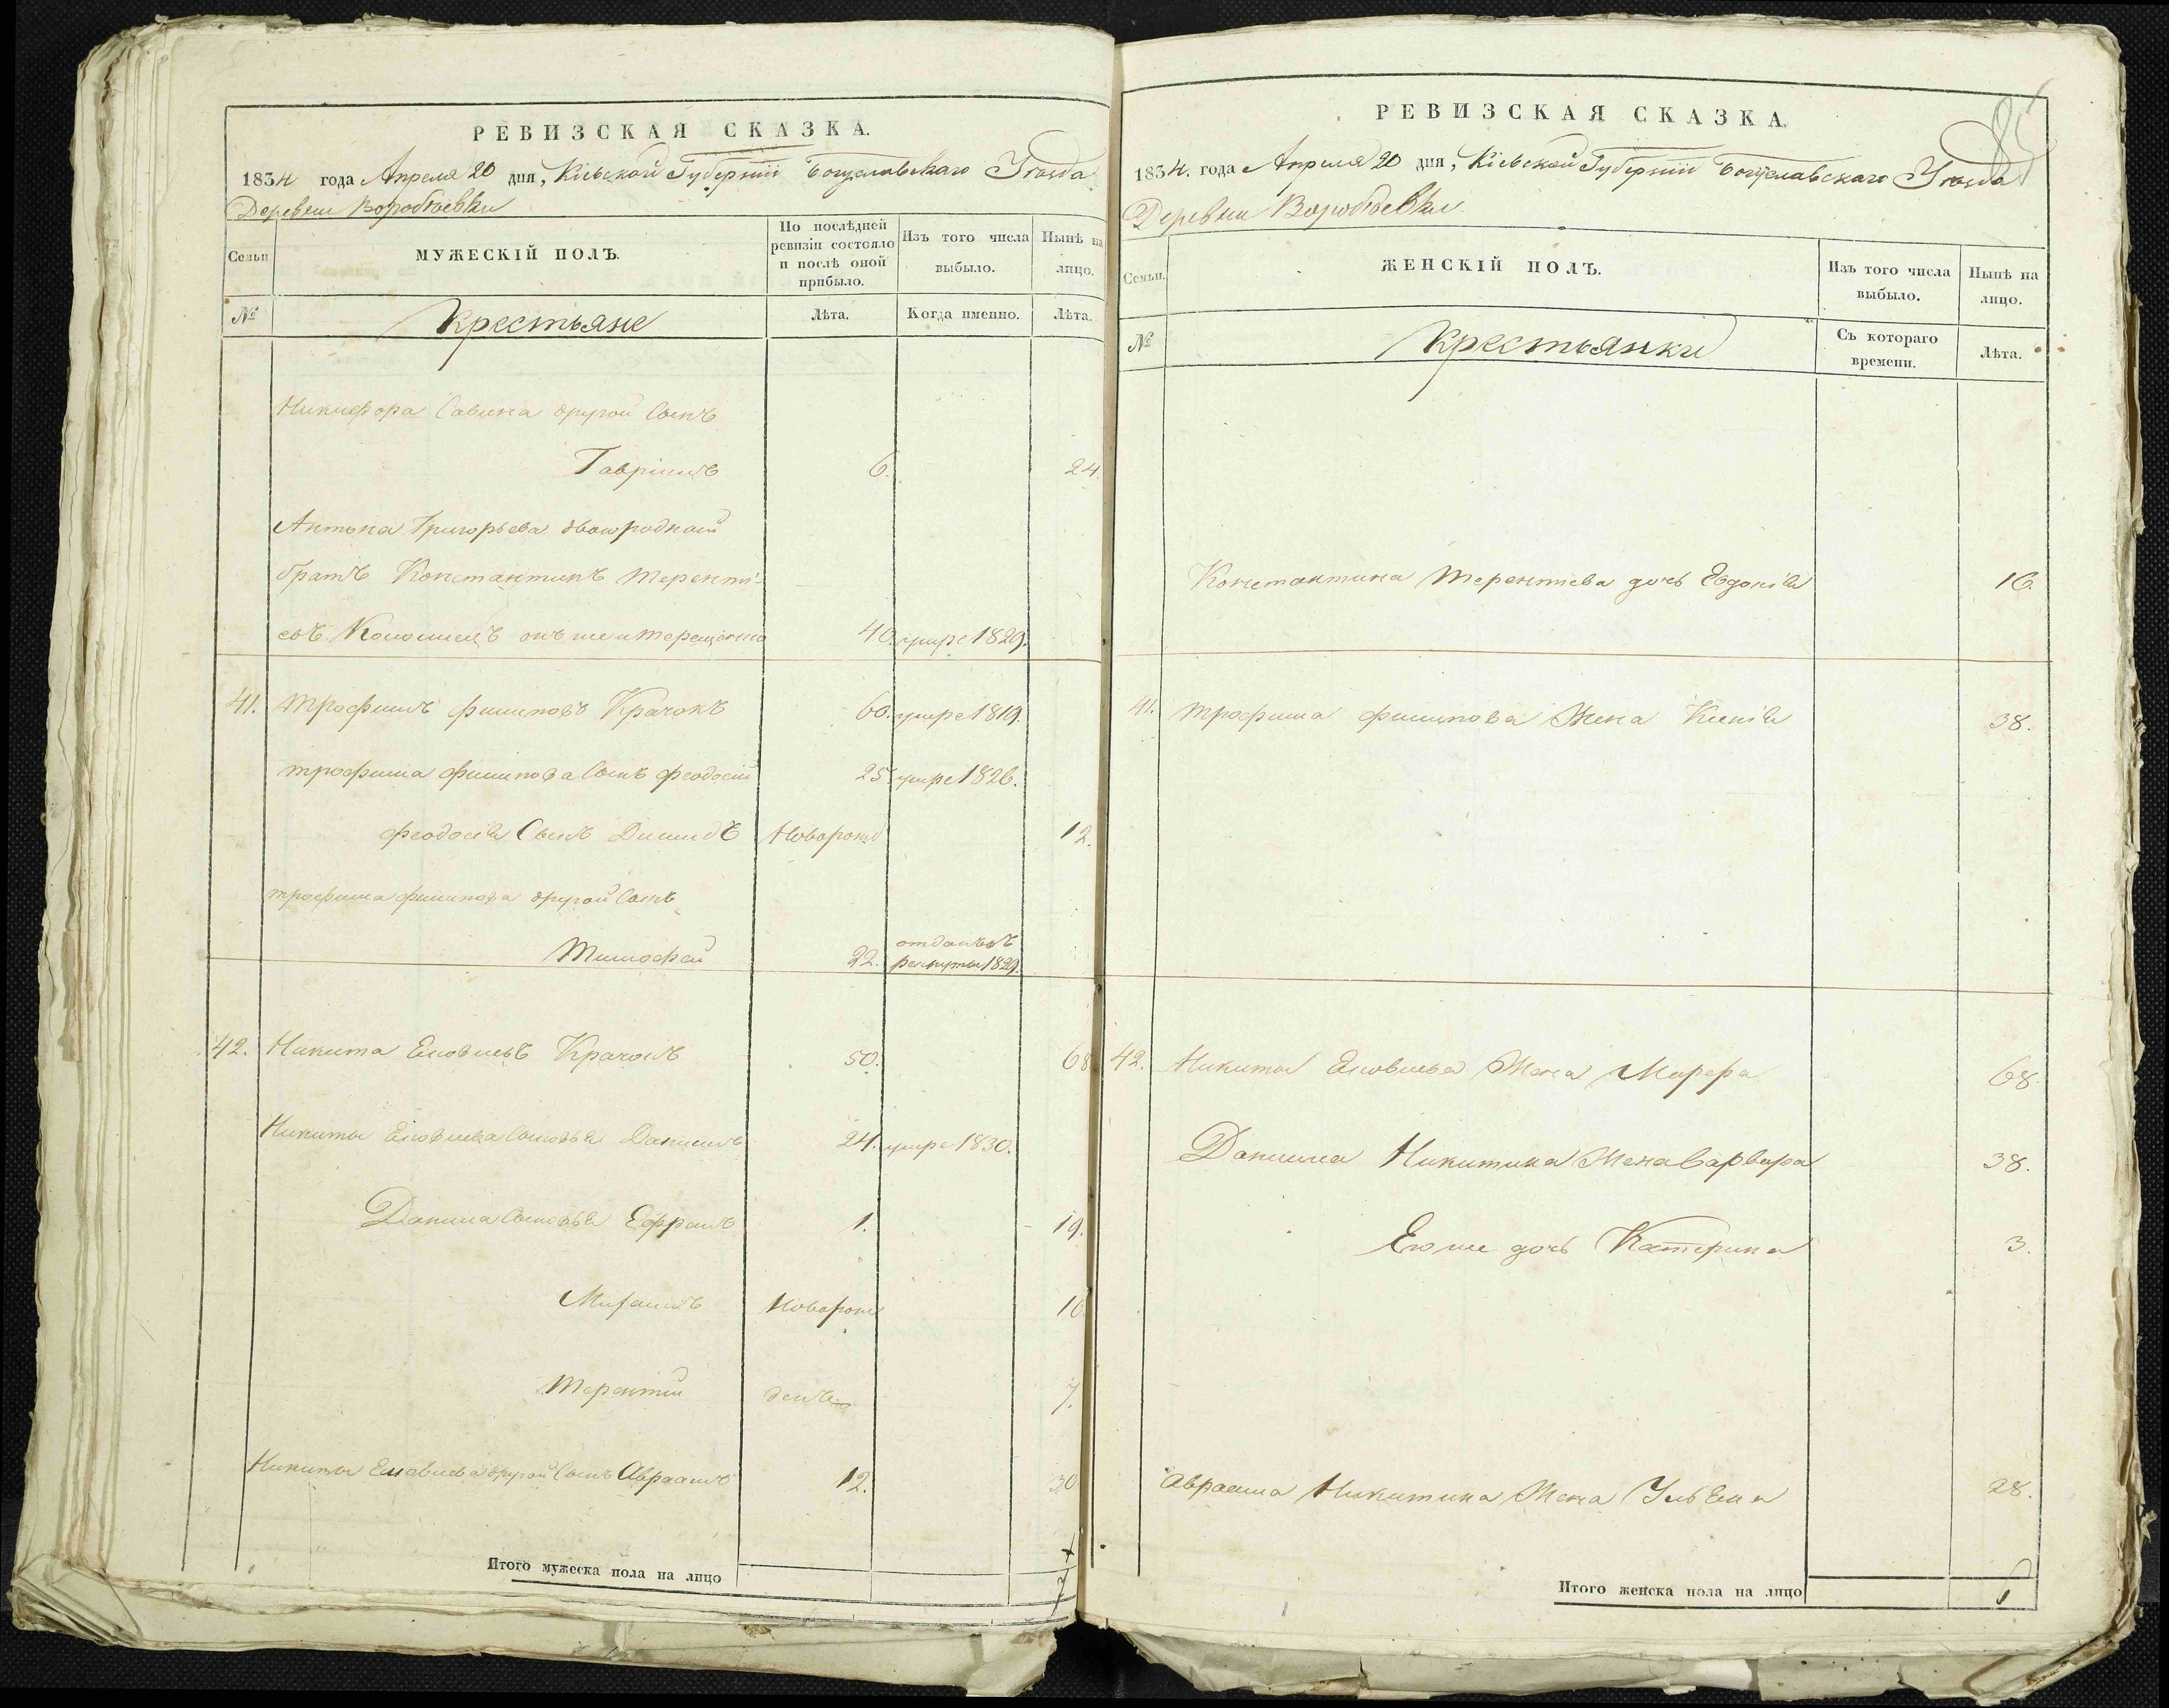 РЕВИЗСКАЯ СКАЗКА.
1834 года Апреля 20 дня, Кіевской Губерніи Богуславскаго Уезда
Деревни Воробьевки
Семьи.
МУЖЕСКІЙ ПОЛЪ.
По послѣдней ревизіи состояло и послѣ оной прибыло.
Изъ того числа выбыло.
Нынѣ на лицо.
№
Крестьяне
Лѣта.
Когда именно.
Лѣта.
Никифора Савина другой Сынъ
Гавріилъ 6. 24.
Антона Григорьева двоюродной
братъ Константинъ Теренті-
евъ онъ же и Терещенко 40. умре 1829.
41. Трофимъ Филиповъ Крачокъ 60. умре 1819.
Трофима Филипова Сынъ Феодосій 25. умре 1826.
Феодосія Сынъ Новорожд 12.
Трофима Филипова другой Сынъ
Тимофей 22. отданъ въ рекруты 1829.
42. Никита Крачокъ 50. 68
Никиты Сыновья Данило 24. умре 1830.
Данила Сыновья Ефремъ 1. 19.
Новорож 16.
Терентій 7.
Никиты другой Сынъ Авраамъ 12. 30
Итого мужеска пола на лицо 7
РЕВИЗСКАЯ СКАЗКА.
85
1834. года Апреля 20 дня, Кіевской Губерніи Богуславскаго Уезда
Деревни Воробьевки.
Семьи.
ЖЕНСКІЙ ПОЛЪ.
Изъ того числа выбыло.
Нынѣ на лицо.
№
Крестьянки
Съ котораго времени.
Лѣта.
Константина Терентіева дочь Евдокія 16.
41. Трофима Филипова Жена Ксенія 38.
42. Никиты Жена Марфа 68.
Данила Никитина Жена Варвара 38.
Его же дочь Катерина 3.
Авраама Никитина Жена Ульяна 28.
Итого женска пола на лицо 6